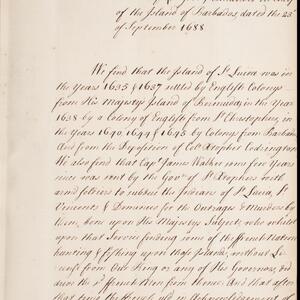 of the Island of Barbados, dated the 25
of September 1688
We find that the Island of St Lucia was in
the Years 1635 & 1637 settled by English Colonys
from His Majestys Island of Bermuda, in the Year
1638 by a Colony of English from St Christophers, in
the Years 1640, 1644 & 1645 by Colonys from Barbad
And from the Deposition of Colo Xtopher Codrington
We also find that Capt James Walker some few Years
since was sent by the Govr of St Xtophers with
armd soldiers to subdue the Indians of St Lucia, St
Vincents & Dominica for the Outrages & Murders by
them, done upon His Majestys Subjects, who whilst
upon that Service finding some of the French Nation
hunting & fishing upon those Islands, without Li
cense from Our King or any of His Governors, did
drive the sd French Men from thence. And that after
that time the French